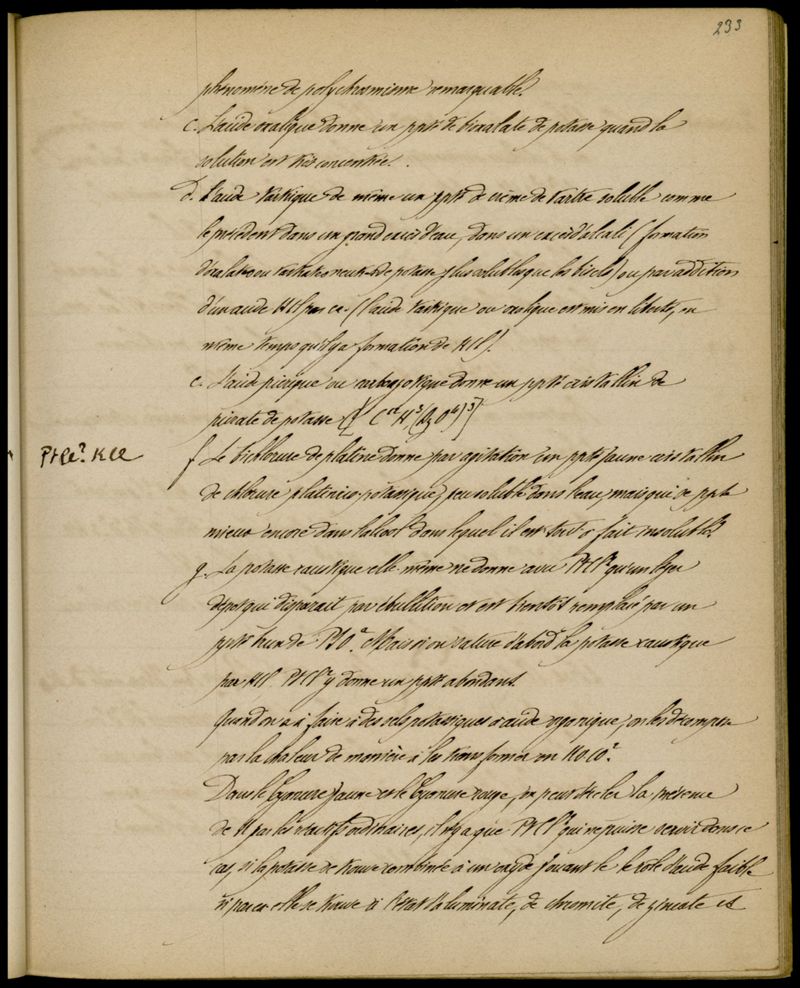 233
phénomène de polychroisme remarquable.
c. L'acide oxalique donne un ppté de bioxalate de potasse quand la
solution est très concentrée.
d. L'acide tartrique de même un ppté de crème de tartre soluble comme
le précédent dans un grand excès d'eau, dans un excès d'alcali (formation
d'oxalate ou tartrate neutre de potasse plus solubles que les bisels) ou par addition
d'un acide HCl par ex. (l'acide tartrique ou oxalique est mis en liberté, en
même temps qu'il y a formation de KCl).
e. L'acide picrique ou carbazotique donne un ppté cristallin de
picrate de potasse
PtCl². KCl
f Le bichlorure de platine donne par agitation un ppté jaune cristallin
de chlorure platinico-potassique, peu soluble dans l'eau, mais qui se ppte
mieux encore dans l'alcool dans lequel il est tout à fait insoluble.
g. La potasse caustique elle même ne donne avec PtCl² qu'un léger
dépôt qui disparait par ébullition et est bientôt remplacé par un
ppté brun de PtO². Mais si on sature d'abord la potasse caustique
par HCl. PtCl² y donne un ppté abondant.
Quand on a à faire à des sels potassiques à acide organique, on les décompose
par la chaleur de manière à les transformer en KO.CO².
Dans le Cyanure jaune et le Cyanure rouge, on peut déceler la présence
de K par les réactifs ordinaires, il n'y a que PtCl² qui ne puisse servir dans ce
cas, si la potasse se trouve combinée à un oxyde jouant le rôle d'acide faible
si par ex elle se trouve à l'état d'aluminate, de chromite, de zincate et